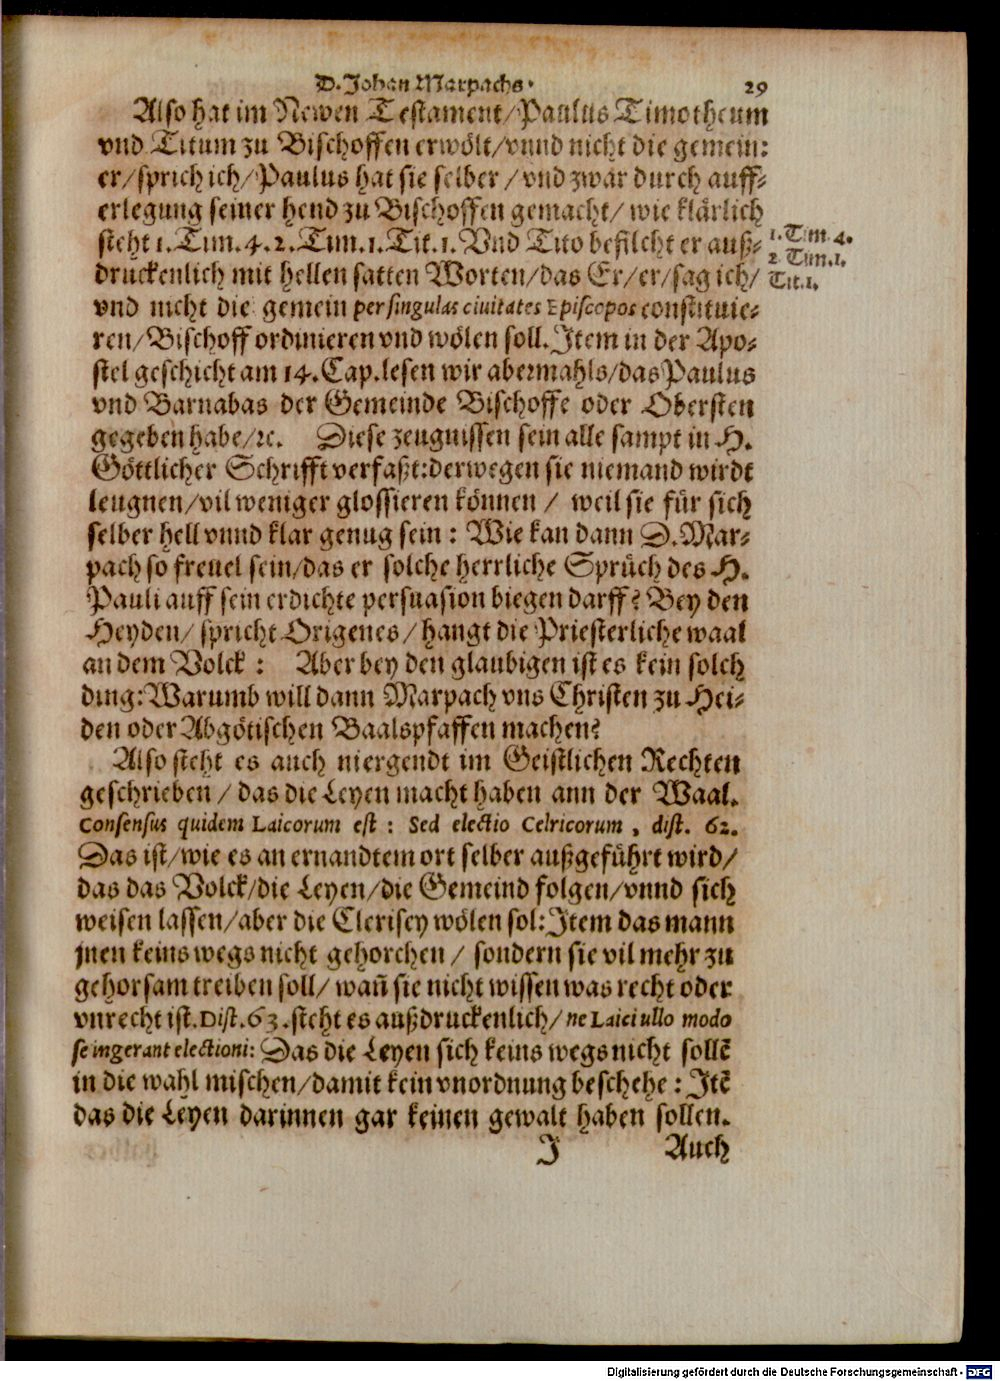 D. Johan Marpachs.
29
Also hat im Newen Testament/ Paulus Timotheum
vnd Titum zu Bischoffen erwölt/ vnnd nicht die gemein:
er/ sprich ich/ Paulus hat sie selber / vnd zwar durch auff-
erlegung seiner hend zu Bischoffen gemacht/ wie klärlich
steht 1. Tim. 4. 2. Tim. 1. Tit. 1. Vnd Tito befilcht er auß-
druckenlich mit hellen satten Worten/ das Er/ er/ sag ich/
vnd nicht die gemein per singulas ciuitates Episcopos constituie-
ren/ Bischoff ordinieren vnd wölen soll. Item in der Apo-
stel geschicht am 14. Cap. lesen wir abermahls/ das Paulus
vnd Barnabas der Gemeinde Bischoffe oder Obersten
gegeben habe/ ꝛc. Diese zeugnissen sein alle sampt in H.
Göttlicher Schrifft verfaßt: derwegen sie niemand wirdt
leugnen/ vil weniger glossieren können / weil sie für sich
selber hell vnnd klar genug sein : Wie kan dann D. Mar-
pach so freuel sein/ das er solche herrliche Sprüch des H.
Pauli auff sein erdichte persuasion biegen darff? Bey den
Heyden/ spricht Origenes/ hangt die Priesterliche waal
an dem Volck : Aber bey den glaubigen ist es kein solch
ding: Warumb will dann Marpach vns Christen zu Hei-
den oder Abgötischen Baalspfaffen machen?
Also steht es auch niergendt im Geistlichen Rechten
geschrieben / das die Leyen macht haben ann der Waal.
Consensus quidem Laicorum est : Sed electio Celricorum , dist. 62.
Das ist/ wie es an ernandtem ort selber außgeführt wird/
das das Volck/ die Leyen/ die Gemeind folgen/ vnnd sich
weisen lassen/ aber die Clerisey wölen sol: Item das mann
jnen keins wegs nicht gehorchen / sondern sie vil mehr zu
gehorsam treiben soll/ wañ sie nicht wissen was recht oder
vnrecht ist. Dist. 63. steht es außdruckenlich/ ne Laici ullo modo
se ingerant electioni: Das die Leyen sich keins wegs nicht sollẽ
in die wahl mischen/ damit kein vnordnung beschehe : Itẽ
das die Leyen darinnen gar keinen gewalt haben sollen.
J
Auch
1. Tim. 4.
2. Tim. 1.
Tit. 1.
Digitalisierung gefördert durch die Deutsche Forschungsgemeinschaft - DFG